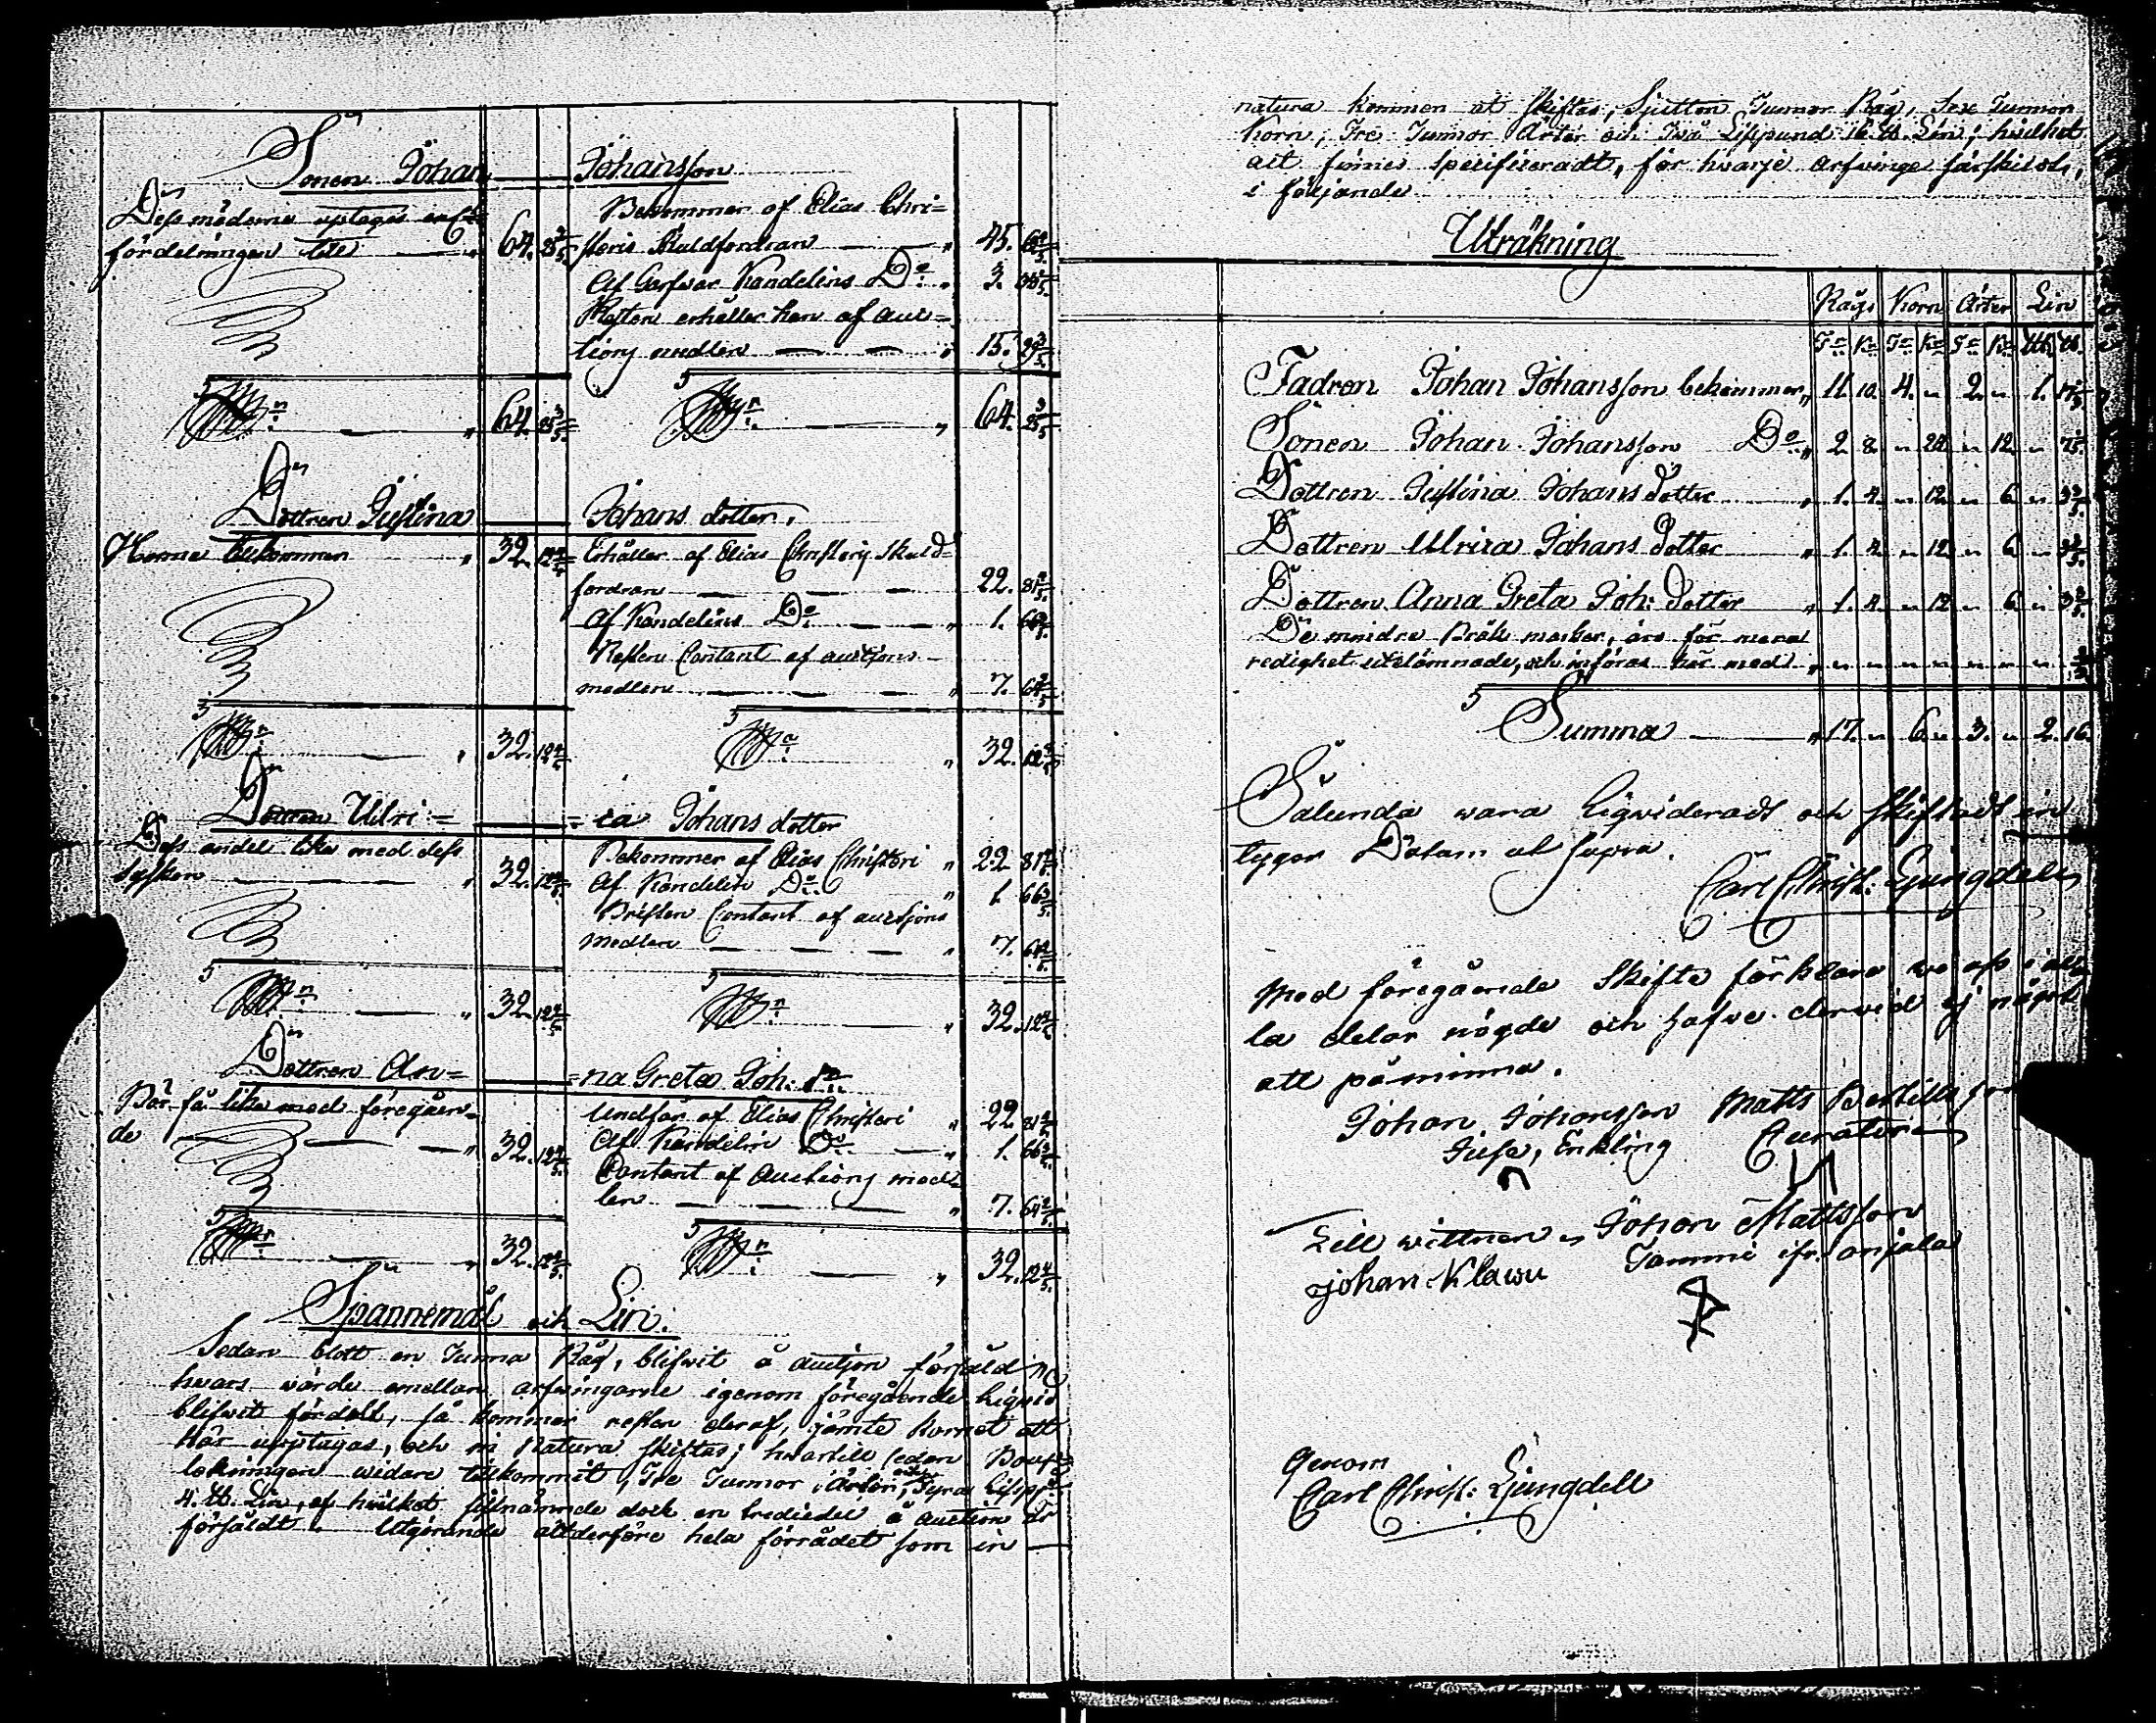 Sonen Johan Johansson
Dess möderne uptages enl.
fördelningen till " 64. 25 3/5.
Bekommer af Elias Chri=
steris Skuldfordran " 45.
Af Garfwar Kandelins Do " 3.
Resten erhåller han af auc=
tions medlen " 15. 29 3/5
64. 25 3/5.
64. 25 3/5
Dottren Justina Johans dotter.
Henne tillkommer " 32. 12 4/5
Erhåller af Elias Christerij Skuld=
fordran 22. 81
Af Kandelins Do " 1. 66
Resten Contant af auctions
medlen " 7. 64
32. 12 4/5
32. 12 4/5
Dottren Ulri= =ca Johans dotter
Dess andel lika med dess
syskon " 32. 12 4/5
Bekommer af Elias Christeri " 22. 81
Af Kandelin Do " 1. 66
Bristen Contant af auctions
medlen " 7. 64
32. 12 4/5
32. 12 4/5
Dottren An= =na Greta Joh: Dr
Bör få lika med föregåen=
de " 32. 12 4/5
Undfår af Elias Christeri " 22. 81
Af Kandelin Do 1. 66
Contant af Auctions med=
len " 7. 64
32. 12 4/5
32. 12 4/5
Spannemål och Lin.
Sedan blott en Tunna Råg, blifwit å auction försåld
hwars wärde emellan arfwingarne igenom föregående Liqwid
blifwit fördelt, så kommer resten deraf, jämte kornet att
här upptagas, och in Natura skiftas; hwartill sedan Boup=
tekningen widare tillkommit, Tre Tunnor Ärter, och Fyra Lispp.
4. ℔. Lin, af hwilket sistnämnde dock en trediedel å auction är
försåldt. Utgörande altderföre hela förrådet som in
natura kommer at skiftas, Sjutton Tunnor Råg, Sex Tunnor
Korn, Tre Tunnor Ärter och Två Lispund 16 ℔. Lin; hwilket
alt finnes specificeradt, för hwarje arfwinge särskildt,
i följande
Uträkning
Råg Korn Ärter Lin
Tr Kr Tr Kr Tr Kr L℔ ℔.
Fadren Johan Johansson bekommer " 11. 10. 4. " 2. " 1.
Sonen Johan Johansson Do " 2. 8. " 24 " 12 "
Dottren Justina Johans Dotter " 1. 4. " 12 " 6 " 3
Dottren Ulrica Johans Dotter " 1. 4. " 12 " 6 " 3
Dottren Anna Greta Joh: Dotter " 1. 4. " 12 " 6 " 3
De mindre Bråk , äro för mera
redighet utelämnade, och införas här med " " " " " " " "
Summa " 17. " 6. " 3. " 2. 16.
Sålunda wara Liqwideradt och skiftadt in
tygar Datum ut supra.
Carl Christ: Ljungdell
Med föregående Skifte förklare wi oss i al
la delar nögde och hafwe derwid ej något
att påminna.
Johan Johansson Matts Bertillsson
Jusa, Enkling Curator
Till wittnen " Johan Mattsson
Johan Klawu Tommi ifr. anjala
Genom
Carl Christ: Ljungdell